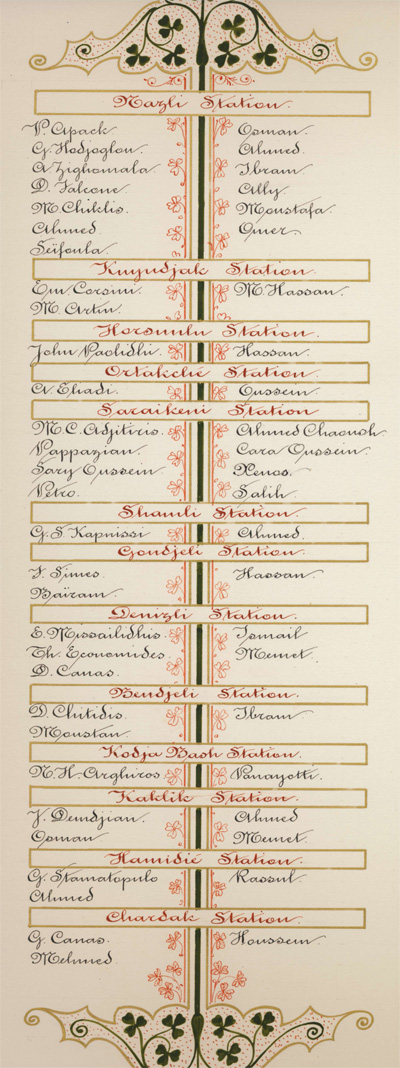 Nazli Station.
V. Apack. Osman.
G. Hodjoglou. Ahmed.
A. Zighomala. Ibram.
D. Falcone. Ally.
M. Chiklis. Moustafa.
Ahmed. Omer.
Seïfoula.
Kuyudjak Station.
Em Corsini. M. Hassan.
M. Artin.
Horsunlu Station.
John Paolidhi. Hassan.
Ortakche Station.
A. Ehadi. Oussein.
Saraikeni Station
M. C. Adjitiris. Ahmed Chaoush.
Pappazian. Cara Oussein.
Sary Oussein. Xenos.
Petro. Salih.
Shamli Station.
G. S. Kapnissi Ahmed.
Gondjeli Station.
F. Simes. Hassan.
Baïram.
Denizli Station.
E. Missailidhis. Ismail
Th. Economides. Memet.
D. Canas.
Bendjeli Station.
D. Chitidis. Ibram.
Moustan.
Kodja Bash Station.
N. H. Arghiros. Panayotti.
Kaklik Station.
J. Demdjian. Ahmed
Osman. Memet.
Hamidié Station.
G. Stamatopulo Rassul.
Ahmed
Chardak Station.
G. Canas. Houssein.
Mehmed.